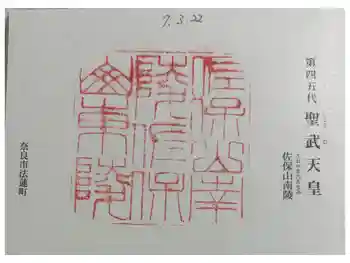 7.3.22
第四五代 聖武天皇
佐保山南陵
佐保山南
陵佐保
山東陵
奈良市法蓮町